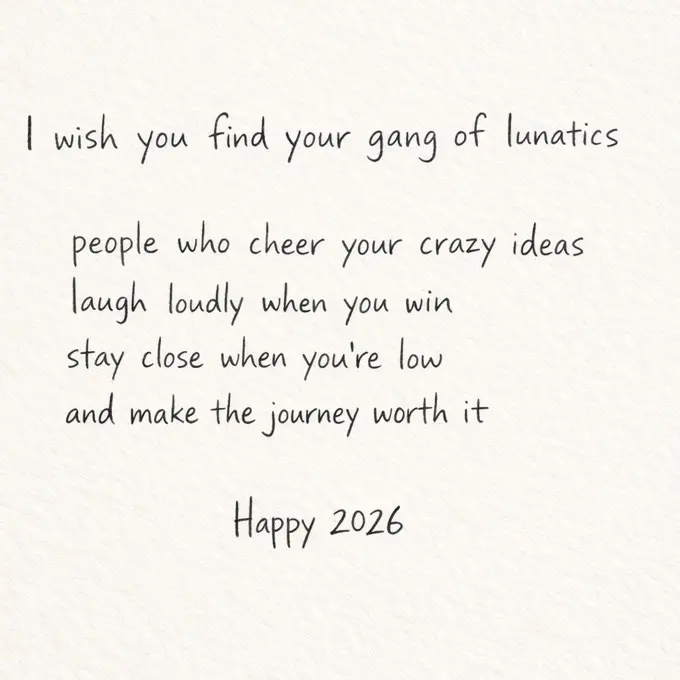 I wish you find your gang of lunatics
people who cheer your crazy ideas
laugh loudly when you win
stay close when you're low
and make the journey worth it
Happy 2026